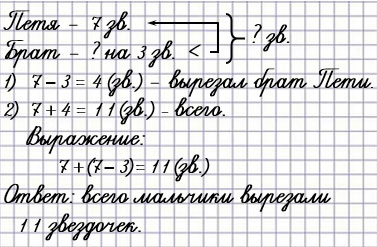 Петя – 7 зв.
Брат – ? на 3 зв. <
? зв.
1) 7 – 3 = 4 (зв.) – вырезал брат Пети.
2) 7 + 4 = 11 (зв.) – всего.
Выражение:
7 + (7 – 3) = 11 (зв.)
Ответ: всего мальчики вырезали
11 звездочек.